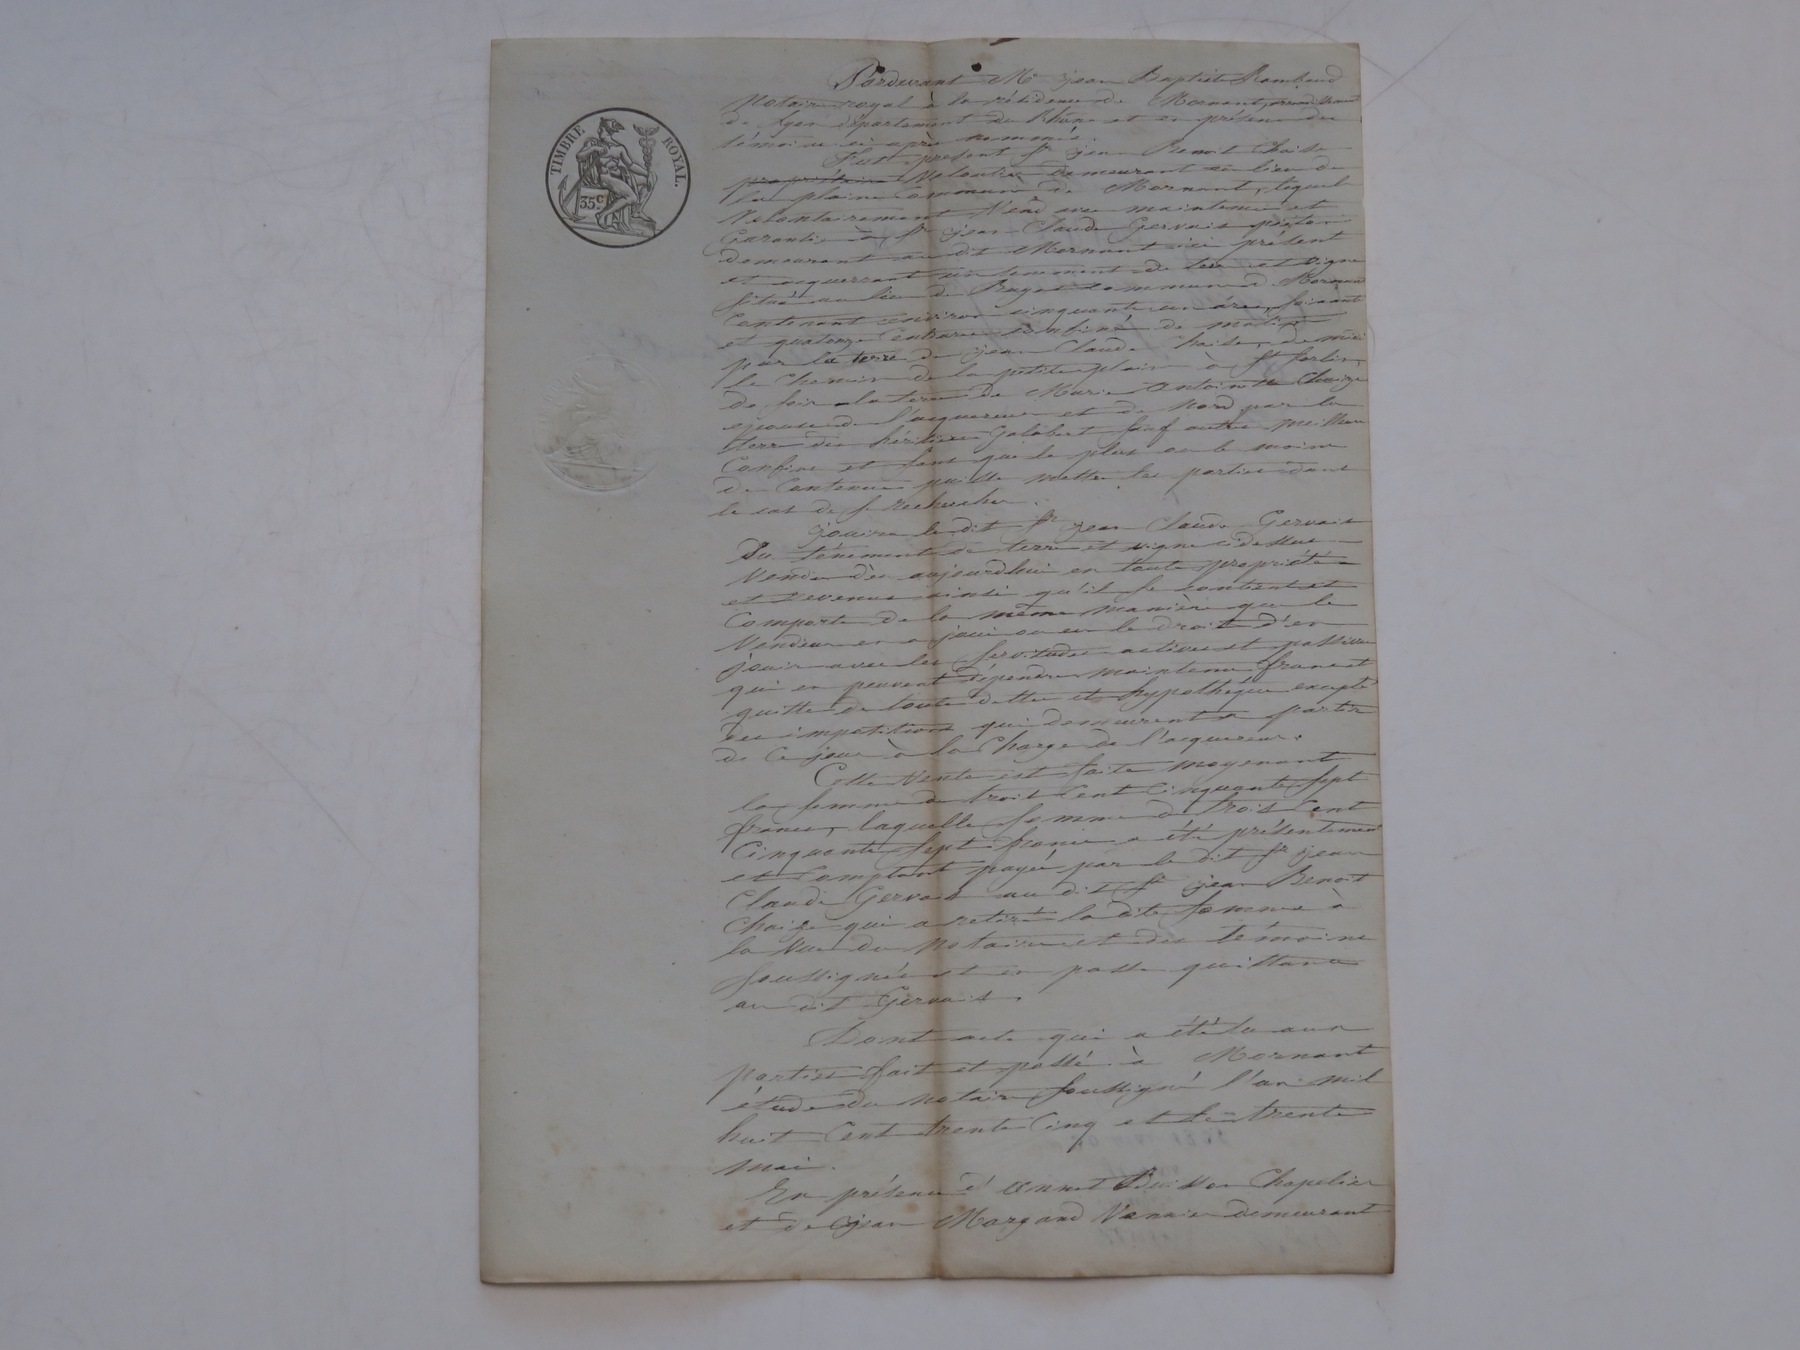 TIMBRE ROYAL.
35c
Pardevant Me jean Baptiste Rambaud
Notaire royal à la résidence de Mornant, arrondissement
de Lyon département du Rhône et en présence des
témoins ci après nommés.
Fut présent Sr jean Benoit Chaize
propriétaire Veloutier demeurant au lieu de
la plaine Commune de Mornant, lequel
Volontairement Vend avec maintenue et
Garantie à Sr jean Claude Gervais
demeurant au dit Mornant ici présent
et acquerrant un tennement de terre et Vigne
Situé au lieu de commune de Mornant
Contenant environ cinquante un ares, soixante
et quatorze Centiares confiné de matin
par la terre de jean Claude Chaize, de midi
le Chemin de la petite plaine à St
de soir la terre de Marie Antoinette Chaize
epouse de l'acquereur et de Nord par la
terre des héritiers Galobert sauf autres meilleurs
Confins et sans que le plus ou le moins
de Contenue puisse mettre les parties dans
le cas de se rechercher.
jouira le dit Sr jean Claude Gervais
Du ténement de terre et vigne ci dessus
Vendu dès aujourdhui en toute propriété
et revenus ainsi qu'il se contient et
Comporte de la même manière que le
Vendeur en a joui ou eu le droit d'en
jouir avec les servitudes actives et passives
qui en peuvent dépendre, maintenu franc et
quitte de toute dette et hypothéque excepté
des impositions qui demeurent a partir
de Ce jour à la Charge de l'acquereur.
Cette Vente est faite moyenant
la somme de trois Cent Cinquante sept
francs, laquelle somme de trois Cent
Cinquante sept francs a été présentement
et Comptant payée par le dit Sr jean
Claude Gervais au dit Sr jean Benoit
Chaize qui a retiré la dite somme à
la Vue du Notaire et des témoins
soussignés et en passe quittance
au dit Gervais.
Dont acte qui a été lu aux
parties fait et passé à Mornant
étude du Notaire soussigné l'an mil
huit Cent trente Cinq et le trente
mai.
En présence d'annet Buisson Chapelier
et de jean Margand Vannier demeurant